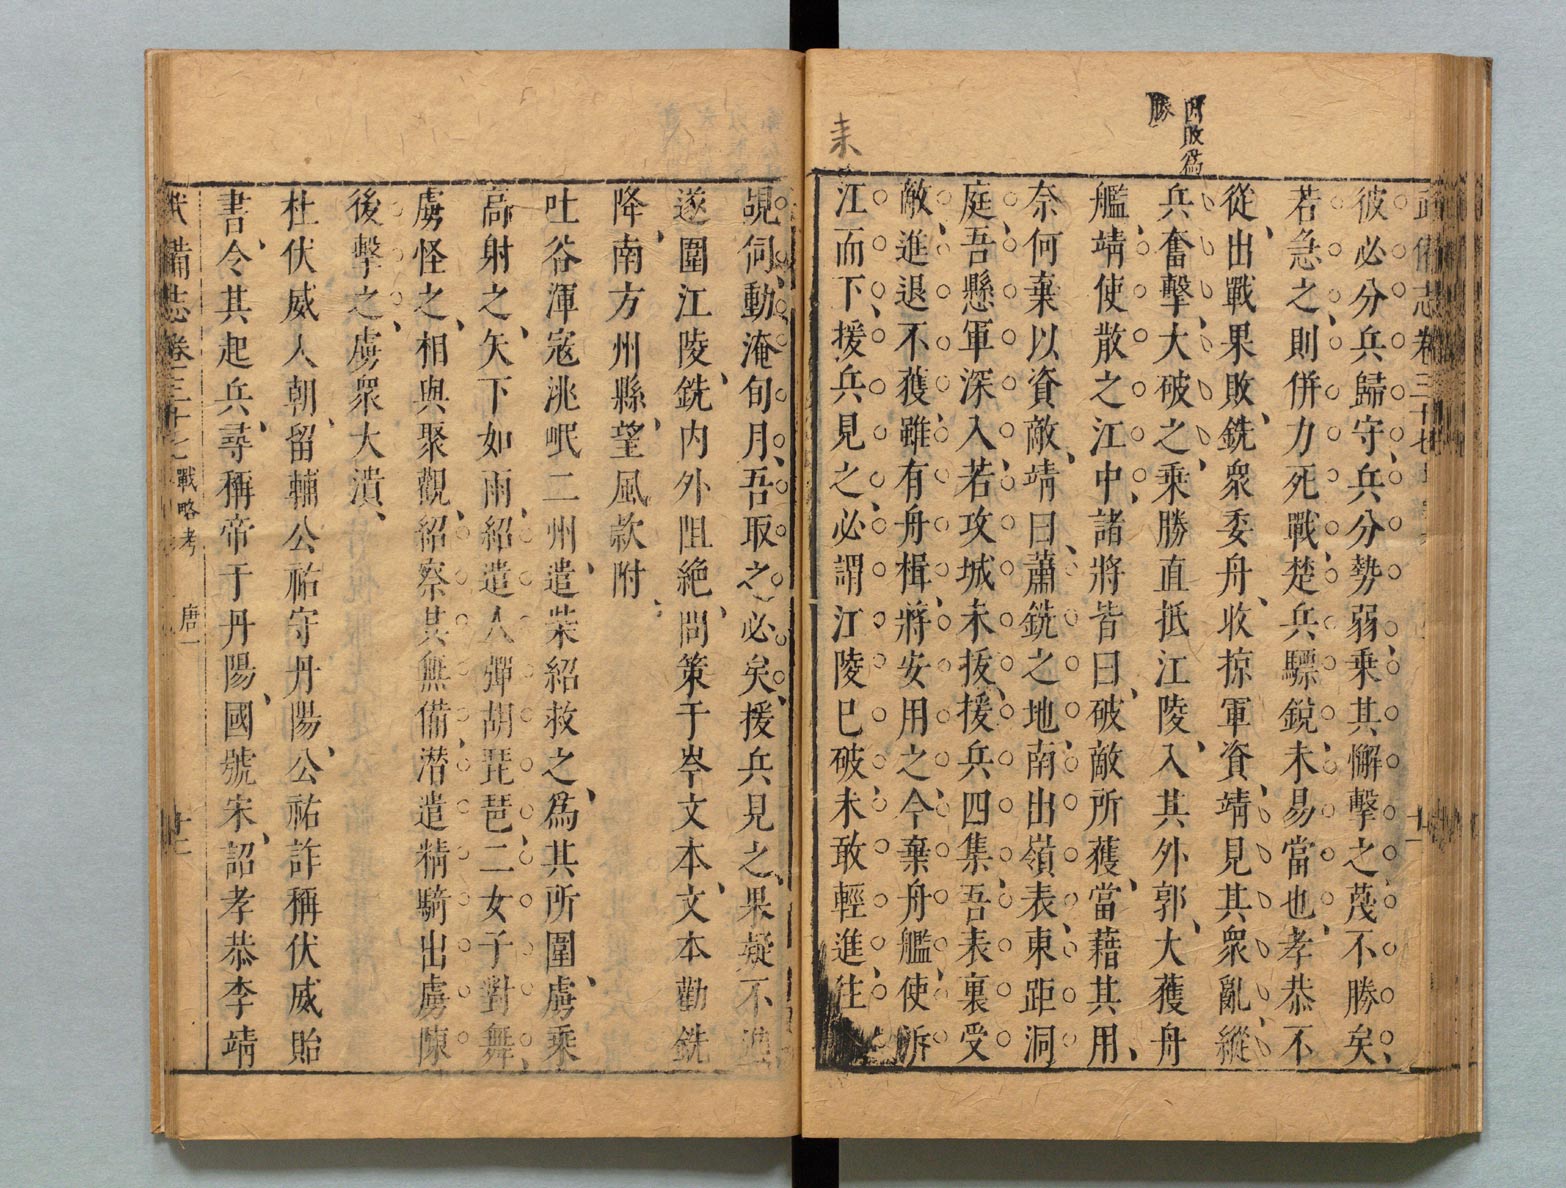 因敗爲
勝
耒
武備志卷三十七
十一
彼必分兵歸守、兵分勢弱、乘其懈擊之、蔑不勝矣、
若急之、則併力死戰、楚兵驃銳、未易當也、孝恭不
從、出戰果敗、銑衆委舟、收掠軍資、靖見其衆亂、縱
兵奮擊、大破之、乘勝直抵江陵、入其外郭、大獲舟
艦、靖使散之江中、諸將皆曰、破敵所獲、當藉其用、
奈何棄以資敵、靖曰、蕭銑之地、南出嶺表、東距洞
庭、吾懸軍深入、若攻城未拔、援兵四集、吾表裏受
敵、進退不獲、雖有舟楫、將安用之、今棄舟艦、使泝
江而下、援兵見之、必謂江陵已破、未敢輕進、往
覘伺、動淹旬月、吾取之必矣、援兵見之、果疑不進、
遂圍江陵、銑內外阻絕、問策于岑文本、文本勸銑
降、南方州縣、望風款附、
吐谷渾寇洮岷二州、遣柴紹救之、爲其所圍、虜乘
高射之、矢下如雨、紹遣人彈胡琵琶、二女子對舞、
虜怪之、相與聚觀、紹察其無備、潛遣精騎出虜陳
後擊之、虜衆大潰、
杜伏威入朝、留輔公祏守丹陽、公祏詐稱伏威貽
書、令其起兵、尋稱帝于丹陽、國號宋、詔孝恭李靖
武備志卷三十七 戰略考 唐一
十二